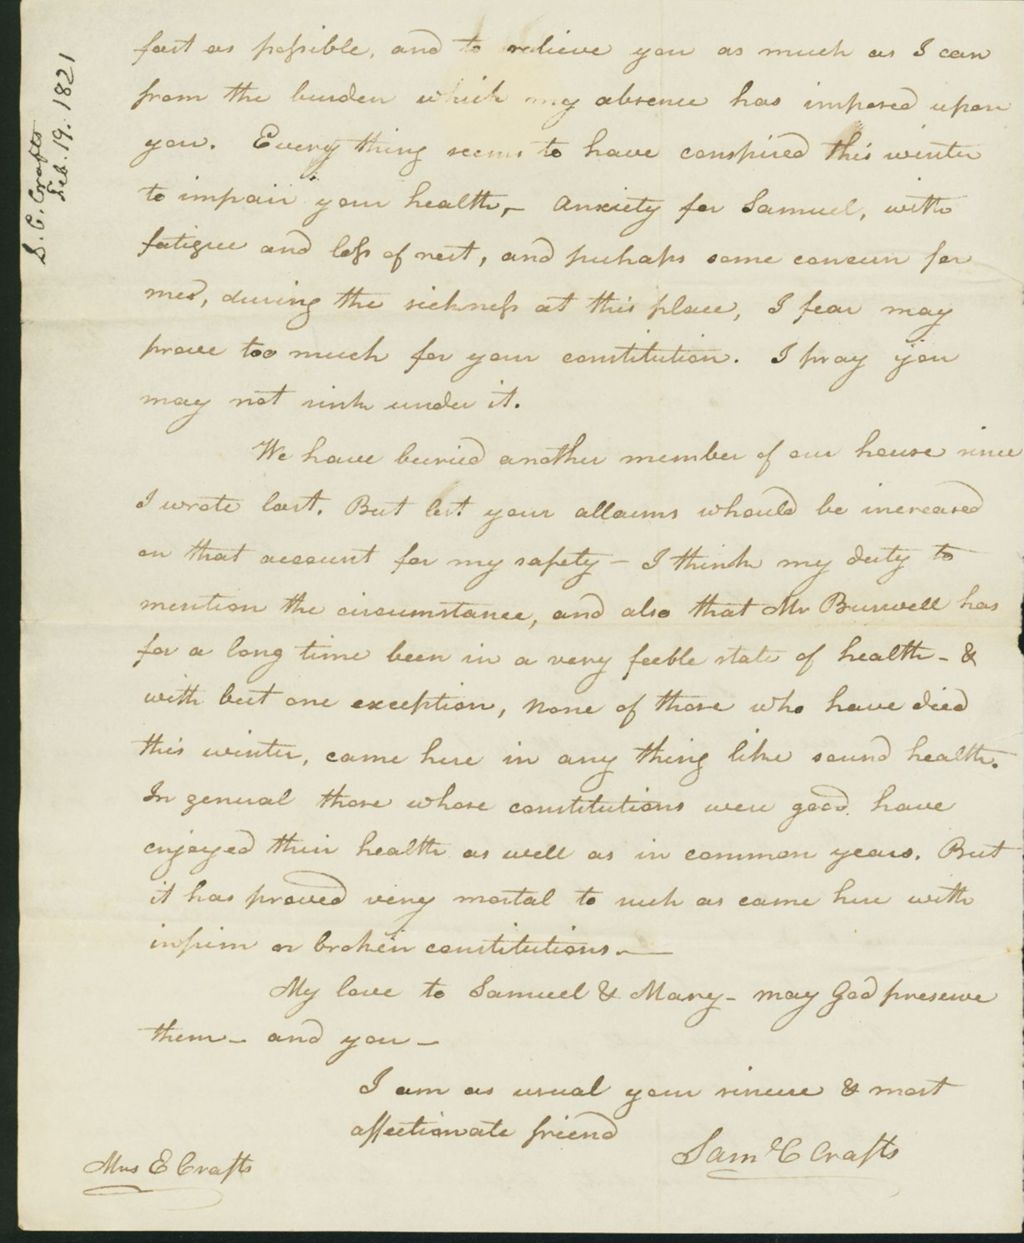 S. C. Crafts
Feb. 19. 1821
fast as possible, and to relieve you as much as I can
from the burden which my absence has imposed upon
you. Every thing seems to have conspired this winter
to impair your health,- Anxiety for Samuel, with
fatigue and loss of rest, and perhaps some concern for
me, during the sickness at this place, I fear may
prove too much for your constitution. I pray you
may not sink under it.
We have buried another member of our house since
I wrote last. But lest your allarms should be increased
on that account for my safety - I think my duty to
mention the circumstance, and also that Mr Burwell has
for a long time been in a very feeble state of health - &
with but one exception, none of those who have died
this winter, came here in any thing like sound health.
In general those whose constitutions were good have
enjoyed their health as well as in common years. But
it has proved very mortal to such as came here with
infirm or broken constitutions.-
My love to Samuel & Mary - may God preserve
them - and you -
I am as usual your sincere & most
affectionate friend
Saml C Crafts
Mrs E Crafts